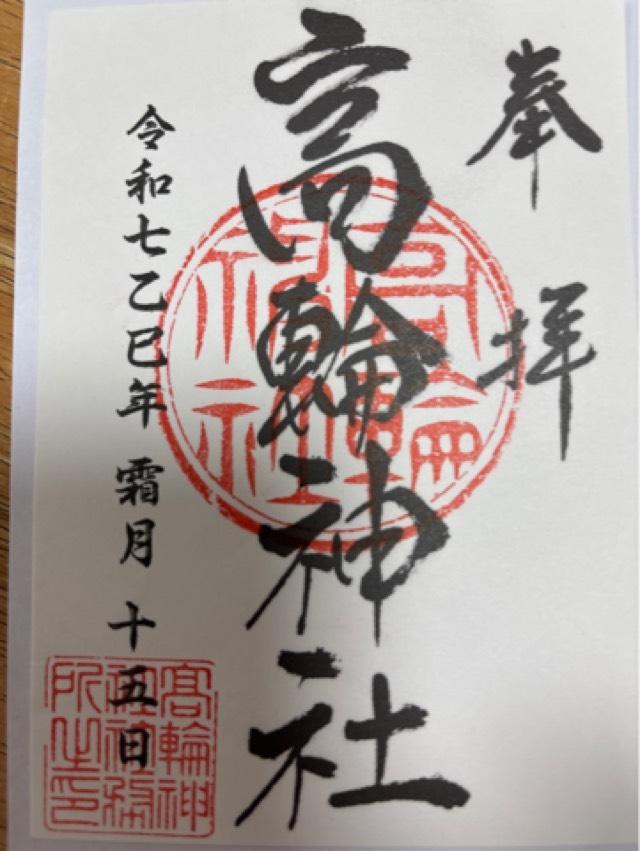 奉拝
高輪神社
令和七乙巳年 霜月 十五日
高輪神社
髙輪神社社務所之印